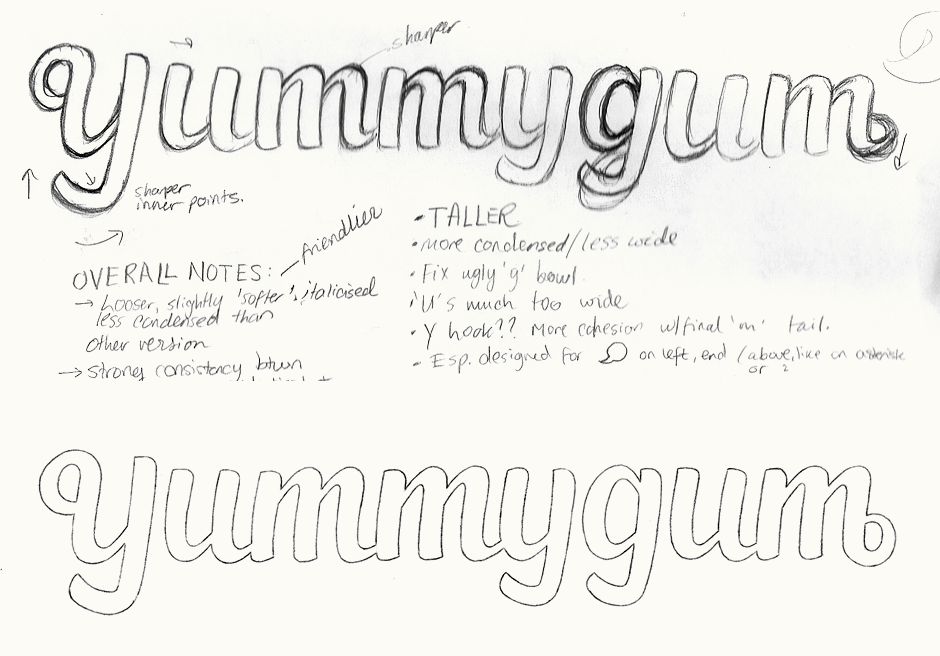 sharper
Yummygum
sharper
inner points.
friendlier
OVERALL NOTES:
→ Looser, slightly 'softer', italicised
less condensed than
other version
→ strong consistency btwn
• TALLER
• More condensed/less wide
• Fix ugly 'g' bowl.
'U's much too wide
• Y hook?? More cohesion w/final 'm' tail.
- Esp. designed for on left, end / above, like an asterisk
or 2
Yummygum